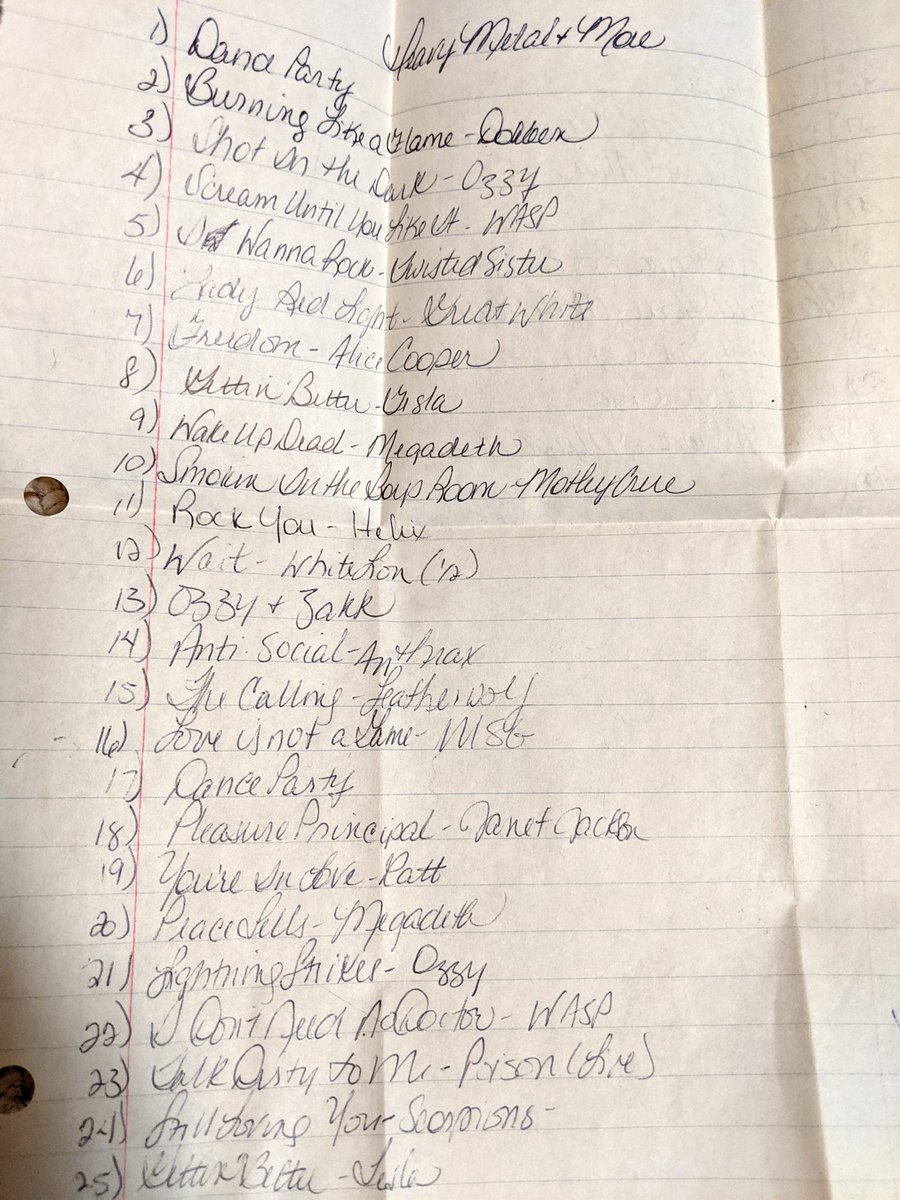 Heavy Metal + More
1) Dance Party
2) Burning Like a Flame - Dokken
3) Shot In the Dark - Ozzy
4) Scream Until You Like It - WASP
5) I Wanna Rock - Twisted Sister
6) Lady Red Light - Great White
7) Freedom - Alice Cooper
8) Gettin' Better - Tesla
9) Wake Up Dead - Megadeth
10) Smokin In the Boys Room - Motley Crue
11) Rock You - Helix
12) Wait - White Lion (1/2)
13) Ozzy + Zakk
14) Anti-Social - Anthrax
15) The Calling - Leatherwolf
16) Love is not a Game - MSG
17) Dance Party
18) Pleasure Principal - Janet Jackson
19) You're In Love - Ratt
20) Peace Sells - Megadeth
21) Lightning Strikes - Ozzy
22) I Don't Need A Doctor - WASP
23) Talk Dirty to Me - Poison (Live)
24) Still Loving You - Scorpions -
25) Gettin Better - Tesla